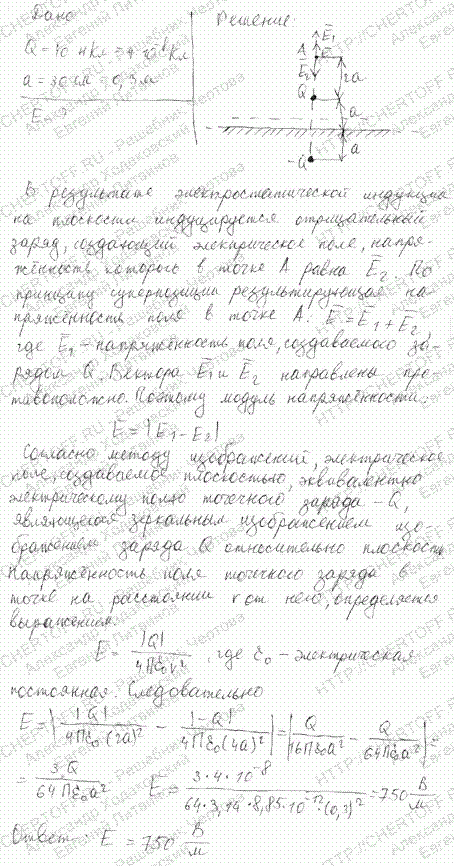 Дано
Решение:
Q = 40 нКл = 4·10⁻⁸ Кл
a = 30 см = 0,3 м
E - ?
A E̅₁ E̅ E̅₂ 2a
Q a
-Q a
В результате электростатической индукции
на плоскости индуцируется отрицательный
заряд, создающий электрическое поле, напря-
жённость которого в точке A равна E̅₂. По
принципу суперпозиции результирующая на-
пряжённость поля в точке A: E̅ = E̅₁ + E̅₂,
где E̅₁ - напряжённость поля, создаваемого за-
рядом Q. Вектора E̅₁ и E̅₂ направлены про-
тивоположно. Поэтому модуль напряжённости:
E = |E₁ - E₂|
Согласно методу изображений, электрическое
поле, создаваемое плоскостью, эквивалентно
электрическому полю точечного заряда -Q,
являющегося зеркальным изображением изо-
бражением заряда Q относительно плоскости
Напряжённость поля точечного заряда в
точке на расстоянии r от него, определяется
выражением:
E = |Q| / 4πε₀r², где ε₀ - электрическая
постоянная. Следовательно
E = | |Q| / 4πε₀·(2a)² - |-Q| / 4πε₀·(4a)² | = | Q / 16πε₀a² - Q / 64πε₀a² | =
= 3Q / 64πε₀a² E = 3·4·10⁻⁸ / 64·3,14·8,85·10⁻¹²·(0,3)² = 750 В/м
Ответ: E = 750 В/м